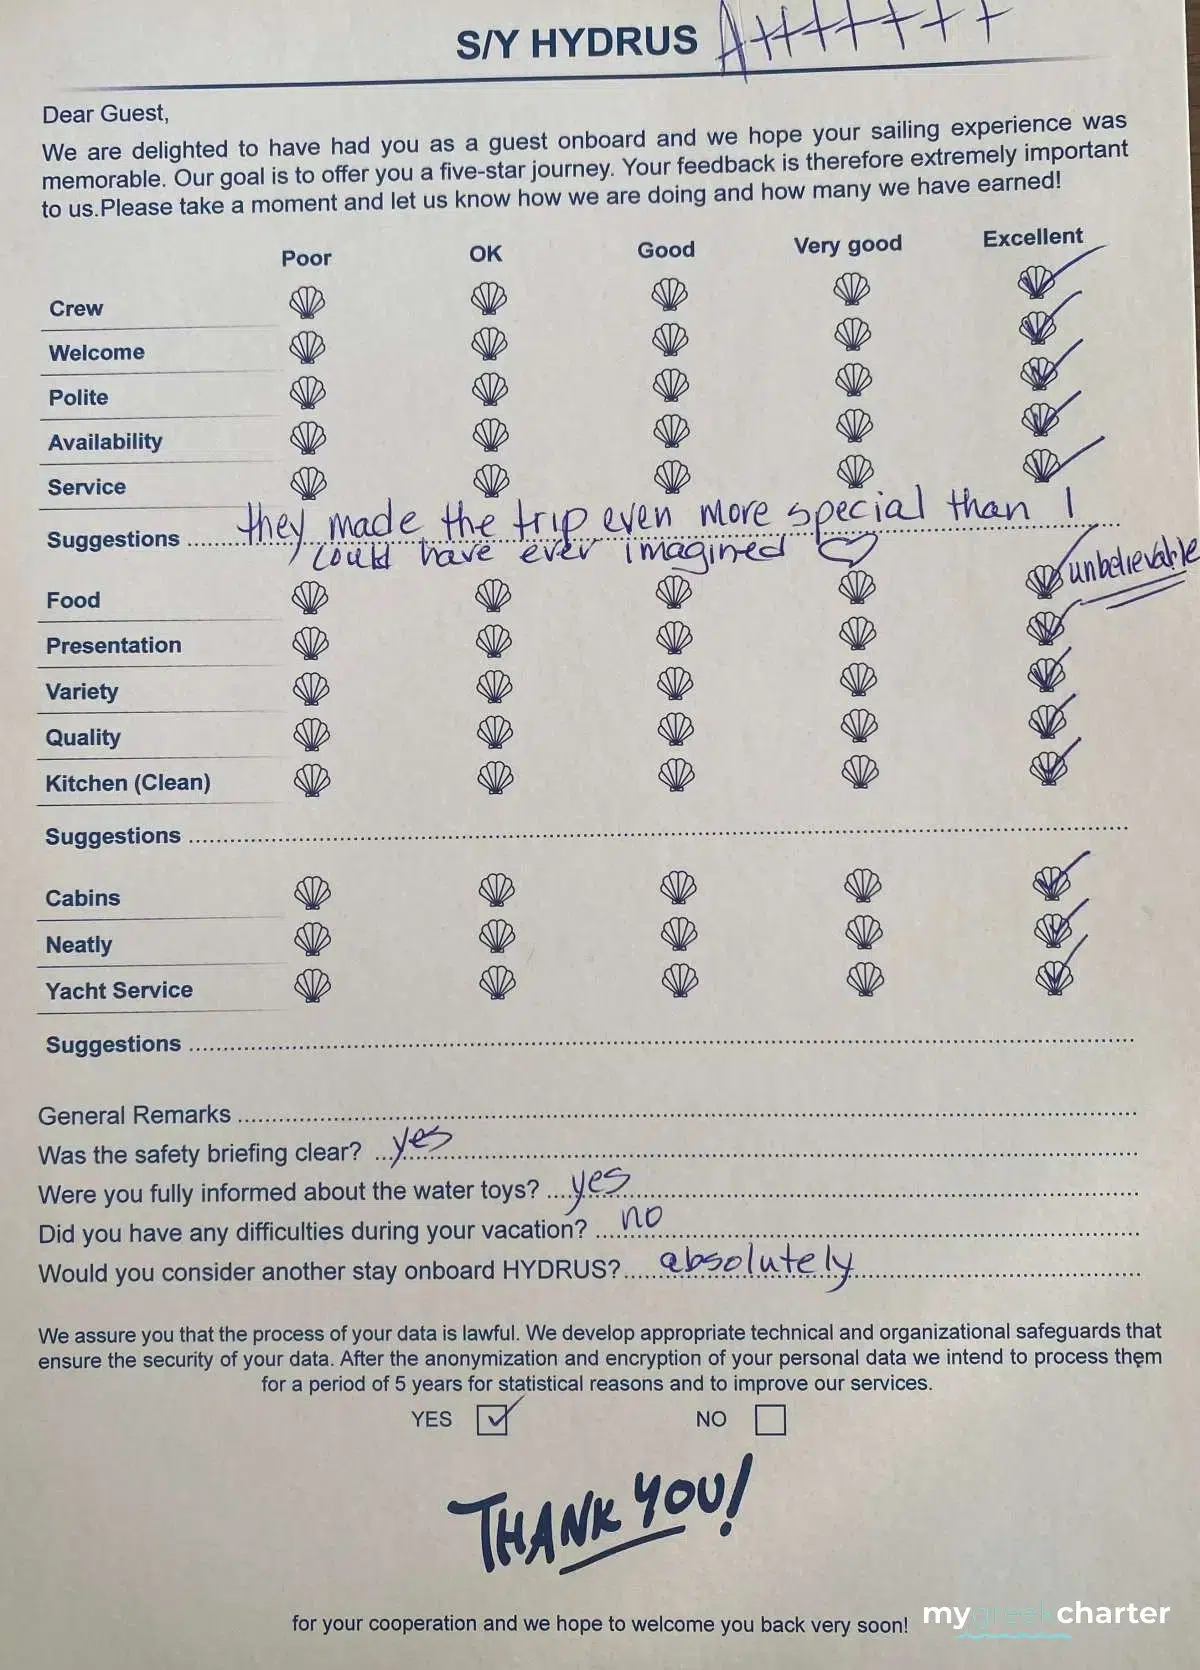 S/Y HYDRUS A+++++++
Dear Guest,
We are delighted to have had you as a guest onboard and we hope your sailing experience was
memorable. Our goal is to offer you a five-star journey. Your feedback is therefore extremely important
to us.Please take a moment and let us know how we are doing and how many we have earned!
Poor OK Good Very good Excellent
Crew
Welcome
Polite
Availability
Service
they made the trip even more special than I
Suggestions
could have ever imagined
Food unbelievable
Presentation
Variety
Quality
Kitchen (Clean)
Suggestions
Cabins
Neatly
Yacht Service
Suggestions
General Remarks
Was the safety briefing clear? yes
Were you fully informed about the water toys? yes
Did you have any difficulties during your vacation? no
Would you consider another stay onboard HYDRUS? absolutely
We assure you that the process of your data is lawful. We develop appropriate technical and organizational safeguards that
ensure the security of your data. After the anonymization and encryption of your personal data we intend to process them
for a period of 5 years for statistical reasons and to improve our services.
YES NO
THANK YOU!
for your cooperation and we hope to welcome you back very soon!
mygreekcharter